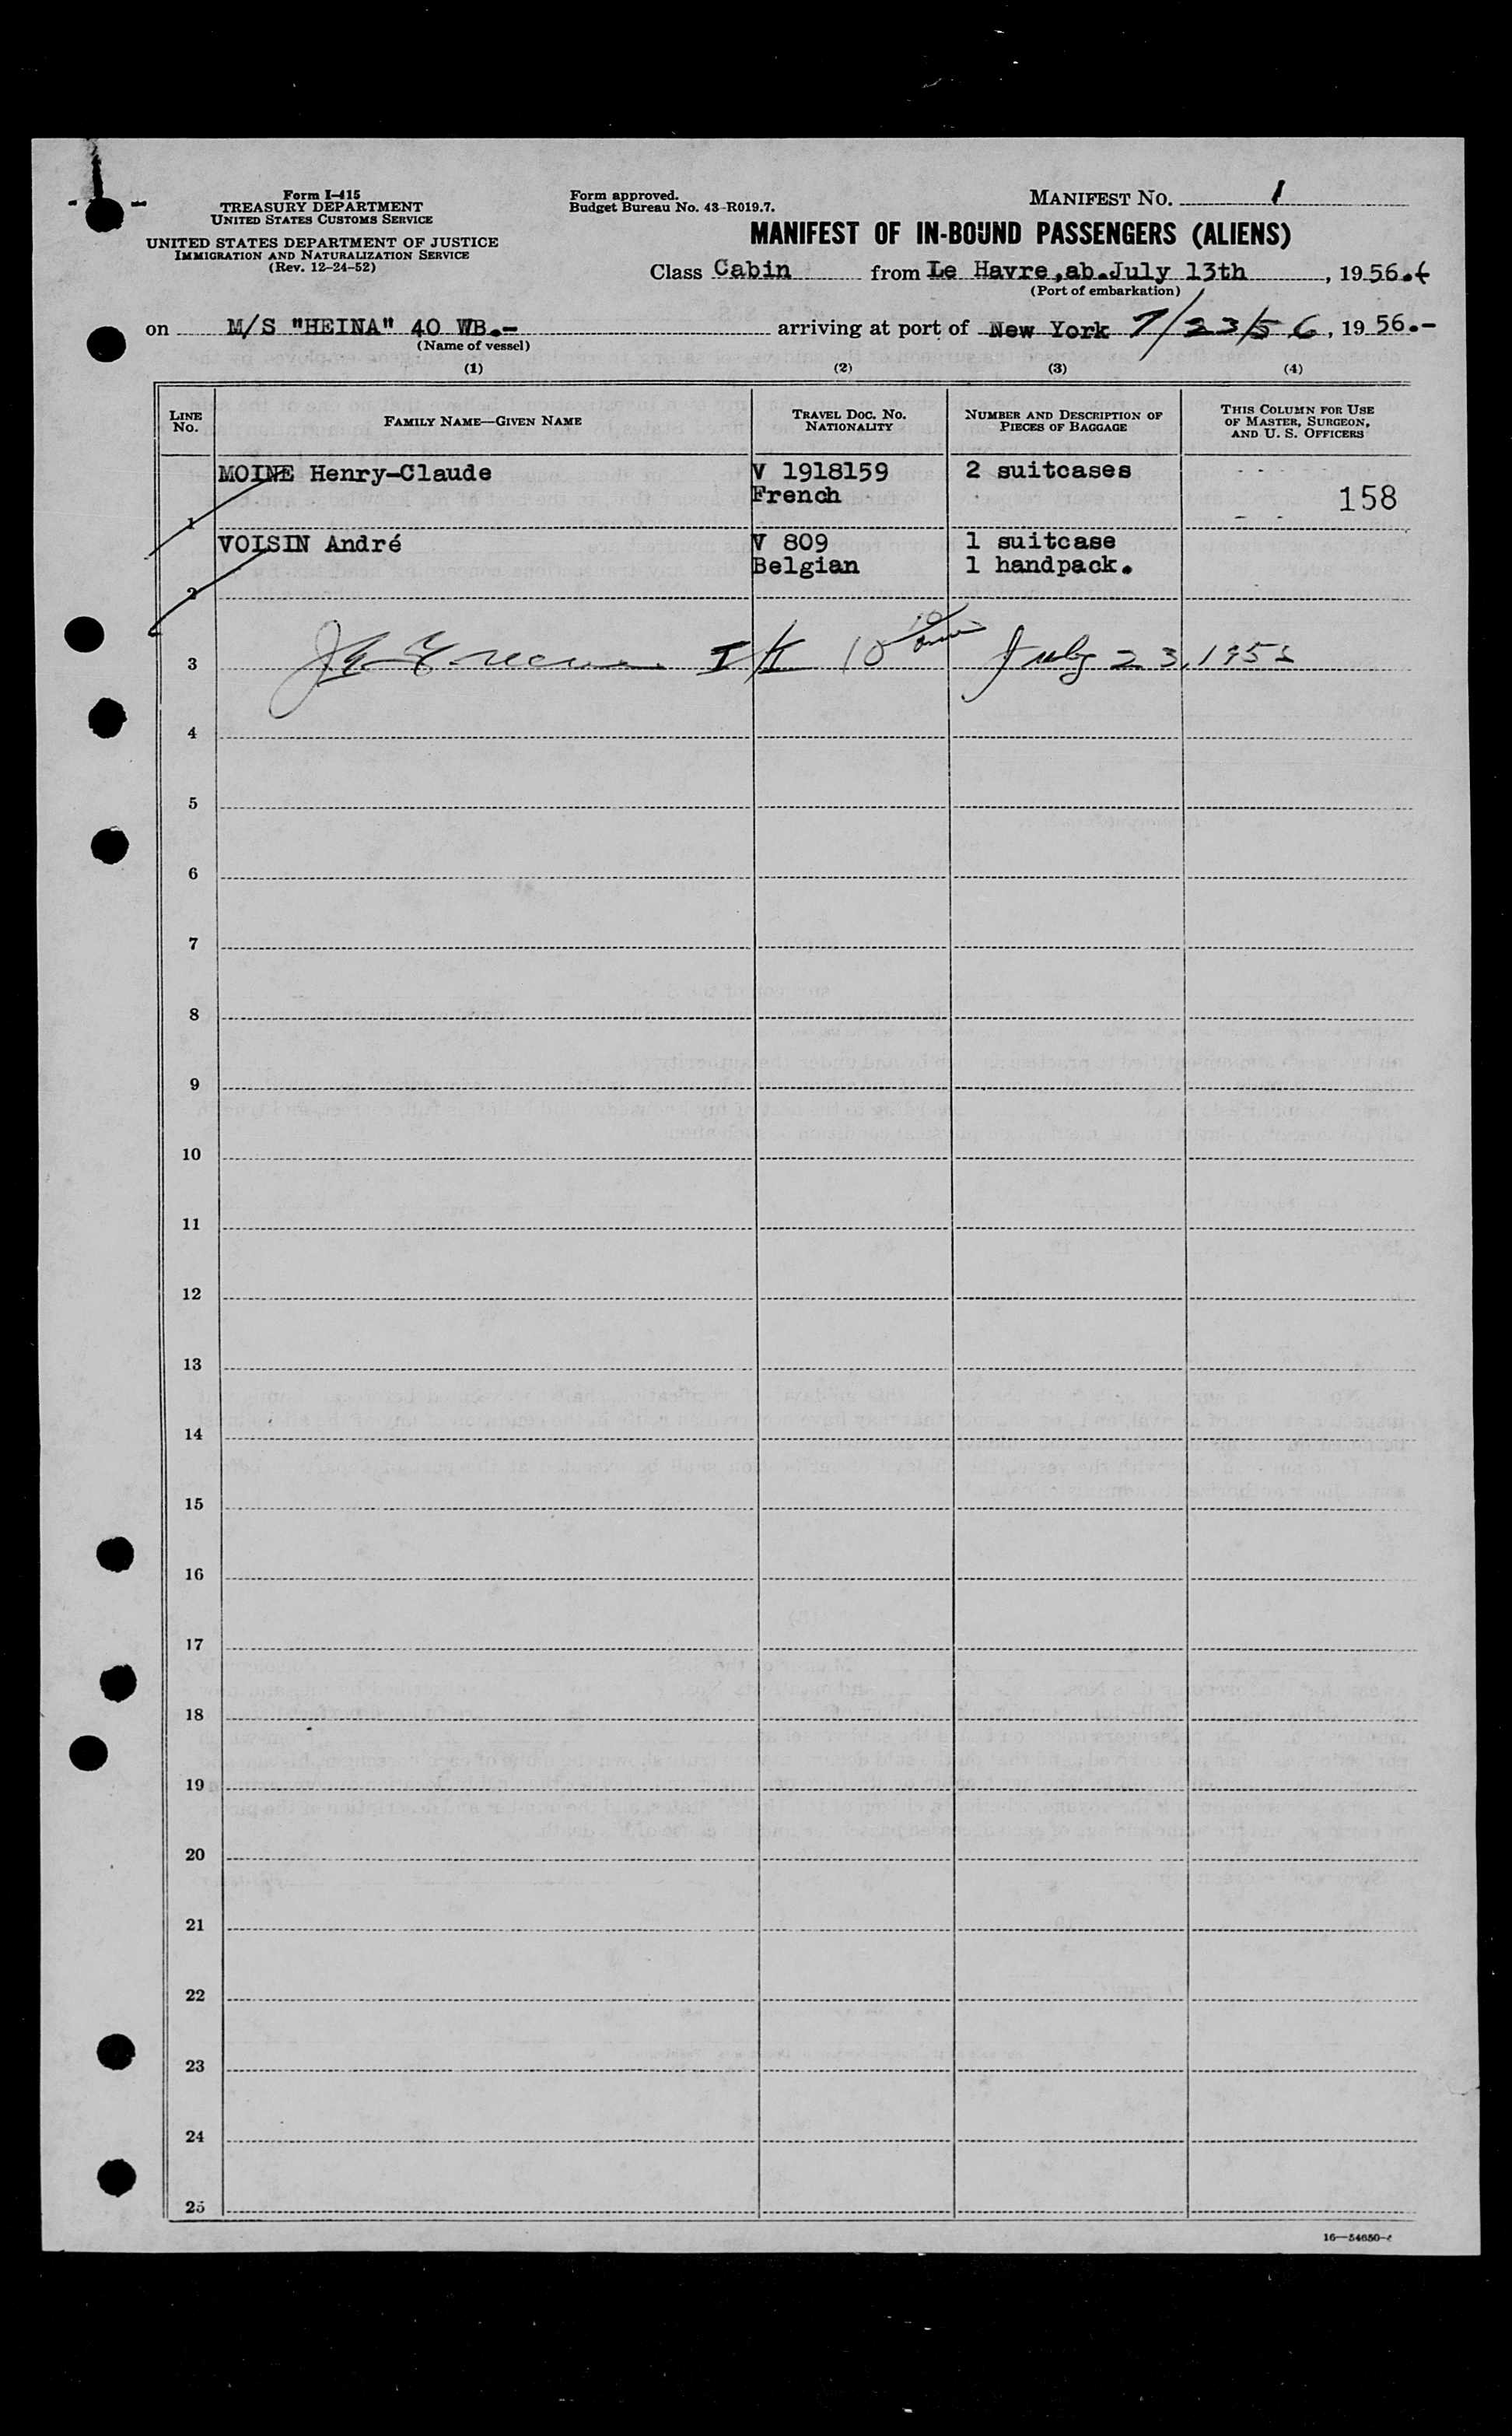 Form I-415
TREASURY DEPARTMENT
UNITED STATES CUSTOMS SERVICE
UNITED STATES DEPARTMENT OF JUSTICE
IMMIGRATION AND NATURALIZATION SERVICE
(Rev. 12-24-52)
Form approved.
Budget Bureau No. 43-R019.7.
MANIFEST NO. 1
MANIFEST OF IN-BOUND PASSENGERS (ALIENS)
Class Cabin from Le Havre, ab. July 13th, 1956.
(Port of embarkation)
on M/S "HEINA" 40 WB.- arriving at port of New York 7/23/56, 1956.-
(Name of vessel)
(1) (2) (3) (4)
LINE NO. FAMILY NAME—GIVEN NAME TRAVEL DOC. NO. NATIONALITY NUMBER AND DESCRIPTION OF PIECES OF BAGGAGE THIS COLUMN FOR USE OF MASTER, SURGEON, AND U. S. OFFICERS
MOINE Henry-Claude V 1918159 2 suitcases
1 French 158
VOISIN André V 809 1 suitcase
2 Belgian 1 handpack.
3 July 23, 195
4
5
6
7
8
9
10
11
12
13
14
15
16
17
18
19
20
21
22
23
24
25